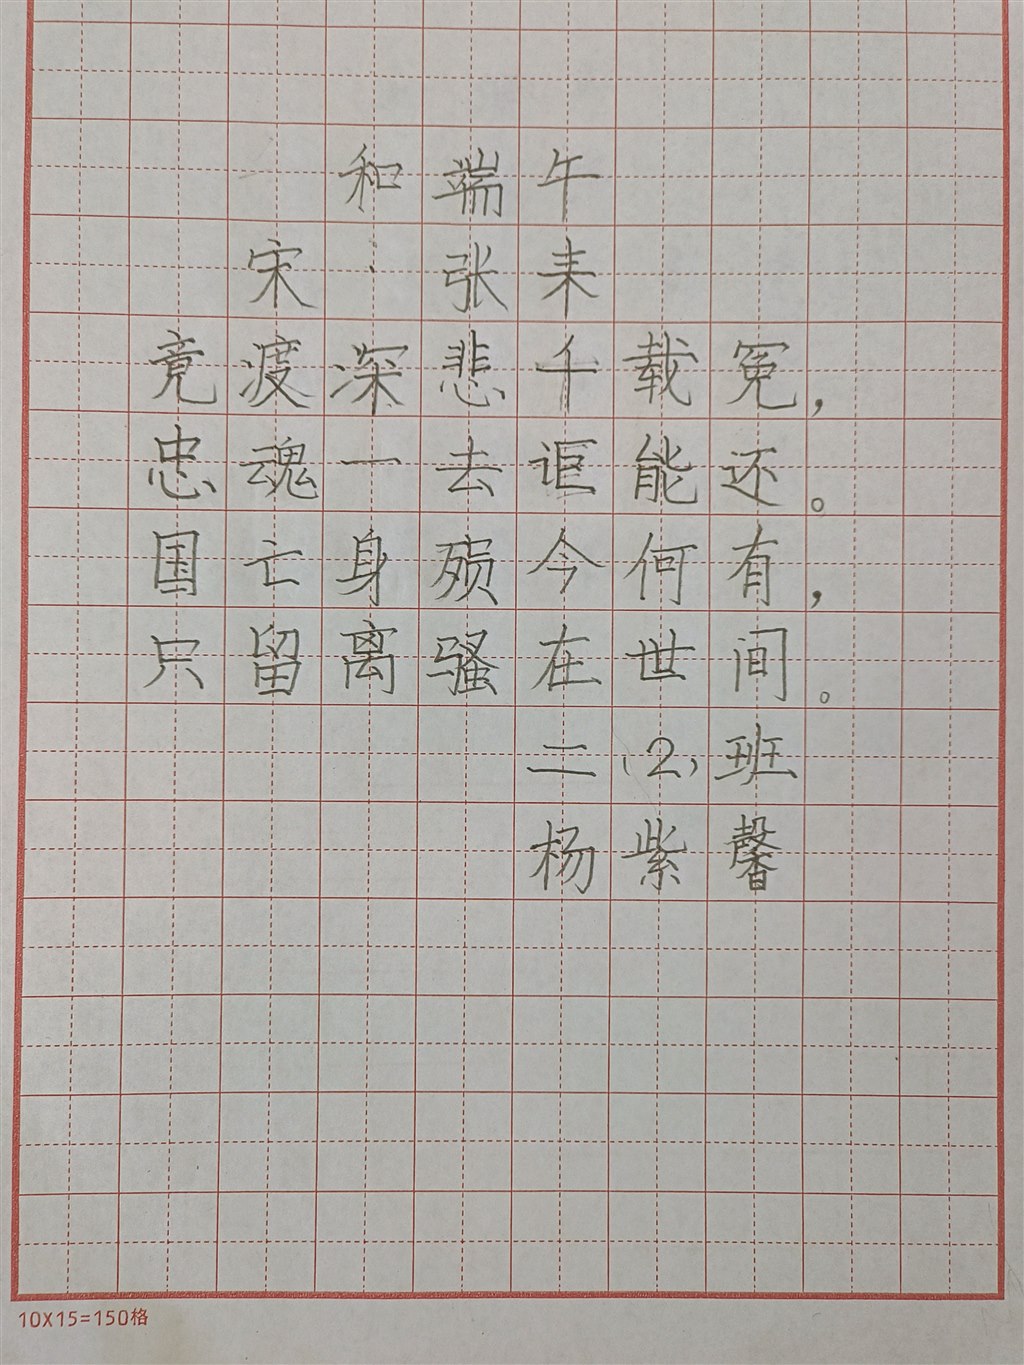 和端午
宋：张耒
竟渡深悲千载冤，
忠魂一去讴能还。
国亡身殒今何有，
只留离骚在世间。
二（2）班
杨紫馨
10X15=150格